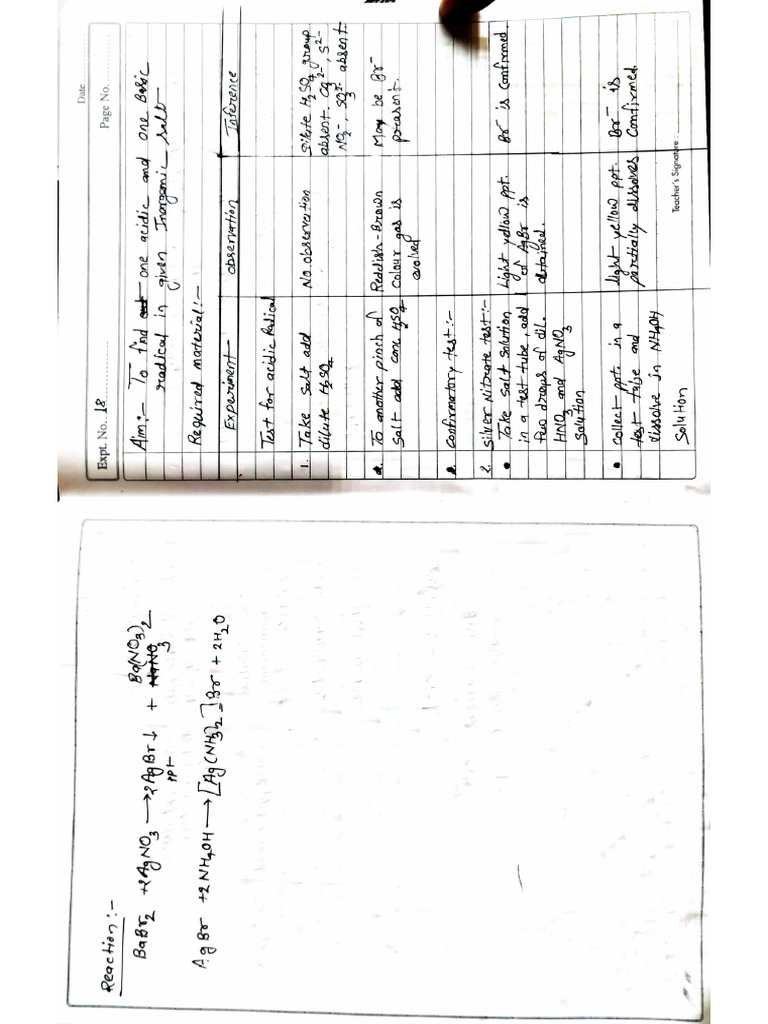 Date
Expt. No. 18
Page No.
Aim:- To find out one acidic and one Basic
radical in given Inorganic salt
Required material:-
Experiment
observation
Inference
Test for acidic Radical
1. Take salt add
dilute H2SO4
No observation
Dilute H2SO4 group
absent. CO3^2-, S^2-
NO2^-, SO3^2- absent.
2. To another pinch of
salt add conc H2SO4
Reddish-Brown
Colour gas is
evolved
May be Br^-
present.
Confirmatory test:-
2. Silver Nitrate test:-
• Take salt solution
in a test tube, add
two drops of dil.
HNO3 and AgNO3
solution
Light yellow ppt.
of AgBr is
obtained.
Br^- is confirmed
• Collect ppt. in a
test tube and
dissolve in NH4OH
Solution
light yellow ppt.
partially dissolves
Br^- is
Confirmed.
Teacher's Signature:
Reaction:-
BaBr2 + 2AgNO3 → 2AgBr↓ + Ba(NO3)2
ppt
AgBr + 2NH4OH → [Ag(NH3)2]Br + 2H2O